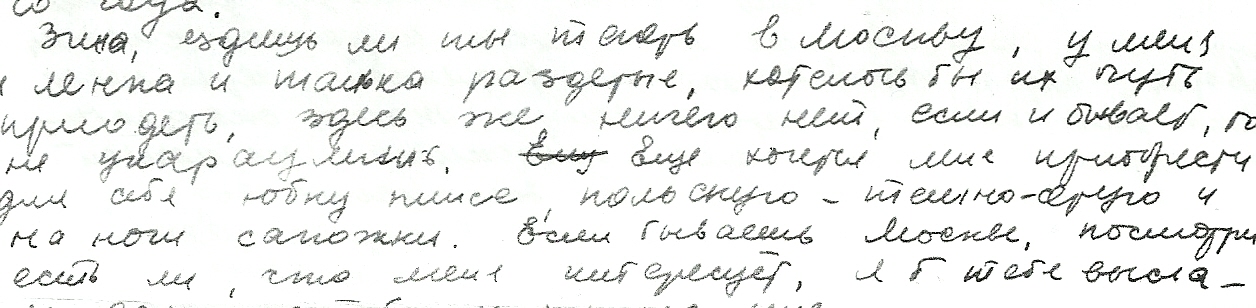 со года.
Зина, ездишь ли ты теперь в Москву, у меня
и Ленка и Танька раздетые, хотелось бы их чуть
приодеть, здесь же ничего нет, если и бывает, то
не укараулишь. Еще хочется мне приобрести
для себя юбку плисе, польскую - темно-серую и
на ноги сапожки. Если бываешь Москве, посмотри
есть ли, что меня интересует, я б тебе высла-